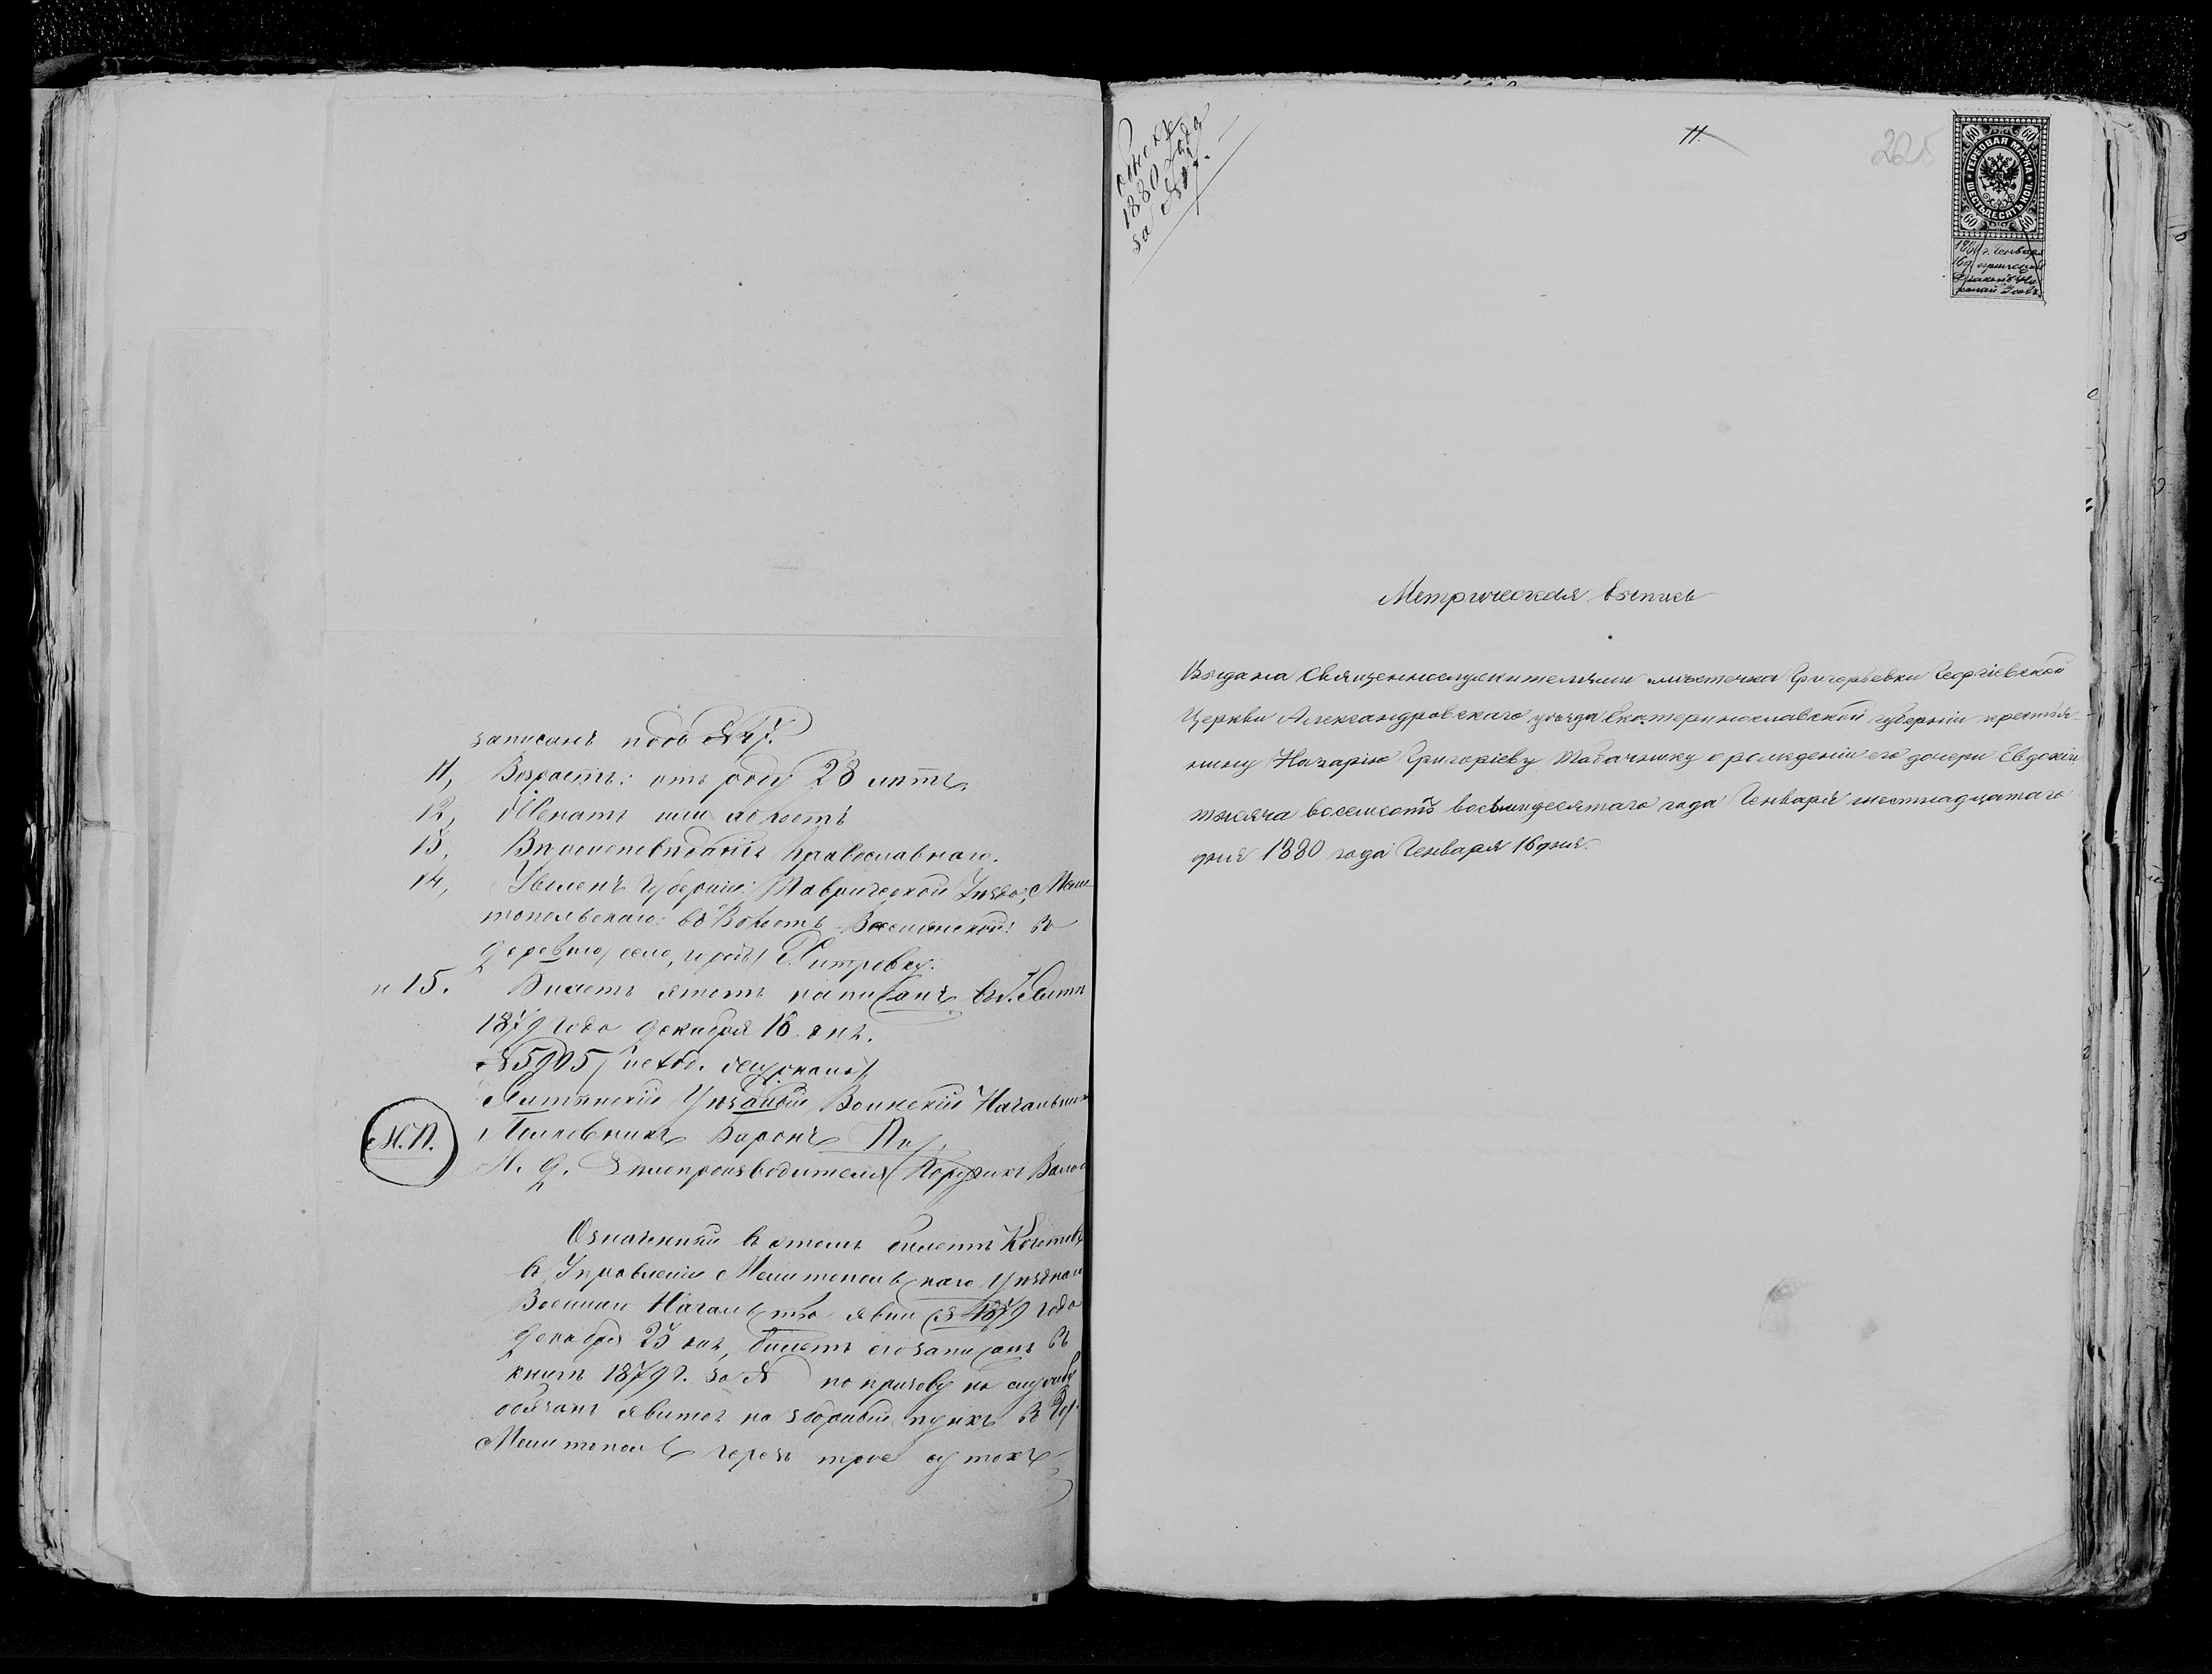 записанъ подъ №47.
11, Возрастъ: отъ роду 28 лѣтъ.
12, Женатъ или холостъ
13, Вѣроисповѣданія православнаго.
14, Уволенъ Губерніи: Таврической Уѣзда: Мели-
топольскаго: въ Волость Веселянской: въ
деревню, село, городъ
и 15. Билетъ этотъ написанъ въ г. Ялтѣ
1879 года декабря 16 дня.
№5905 / исход. журнала /
Ялтинскій Уѣздный Воинскій Начальникъ
М.П. Полковникъ Баронъ
И. д. Дѣлопроизводителя Поручикъ
Означенный въ этомъ билетѣ
въ Управленіе Мелитопольскаго Уѣзднаго
Воинскаго Начальника явился 1879 года
Декабря 23 дня, билетъ его записанъ въ
книгѣ 1879 г. за № по призову на службу
обязанъ явится на зборный пунктъ въ Гор.
Мелитополь черезъ трое сутокъ
1880 года
за №17.
11.
225
60 60
ГЕРБОВАЯ МАРКА
ШЕСТЬДЕСЯТЪ КОП.
60 60
1880 г. Генваря
16
Метрическая выпись
Выдана Священнослужителями мѣстечка Григорьевки Георгіевской
Церкви Александровскаго уѣзда Екатеринославской губерніи крестья-
нину Назарію Григоріеву Табачнику о рожденіи его дочери Евдокіи
тысяча восемсотъ восьмидесятаго года Генваря шестнадцатаго
дня 1880 года Генваря 16 дня.